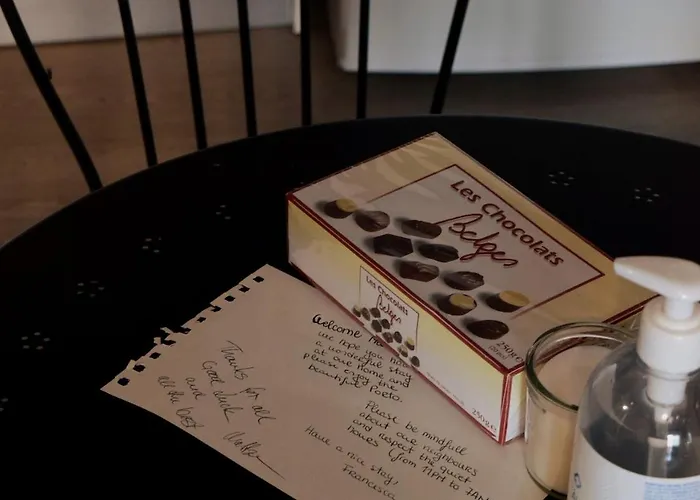 Les Chocolats
Belges
250g e
Les Chocolats
Belges
250g e
Welcome
we hope you have
a wonderful stay
at our Home and
please enjoy the
beautiful Porto.
Please be mindfull
about our neighbours
and respect the quiet
hours (from 11PM to 7AM
Have a nice stay!
Francisca
Thanks for all
and
Good luck
all the best